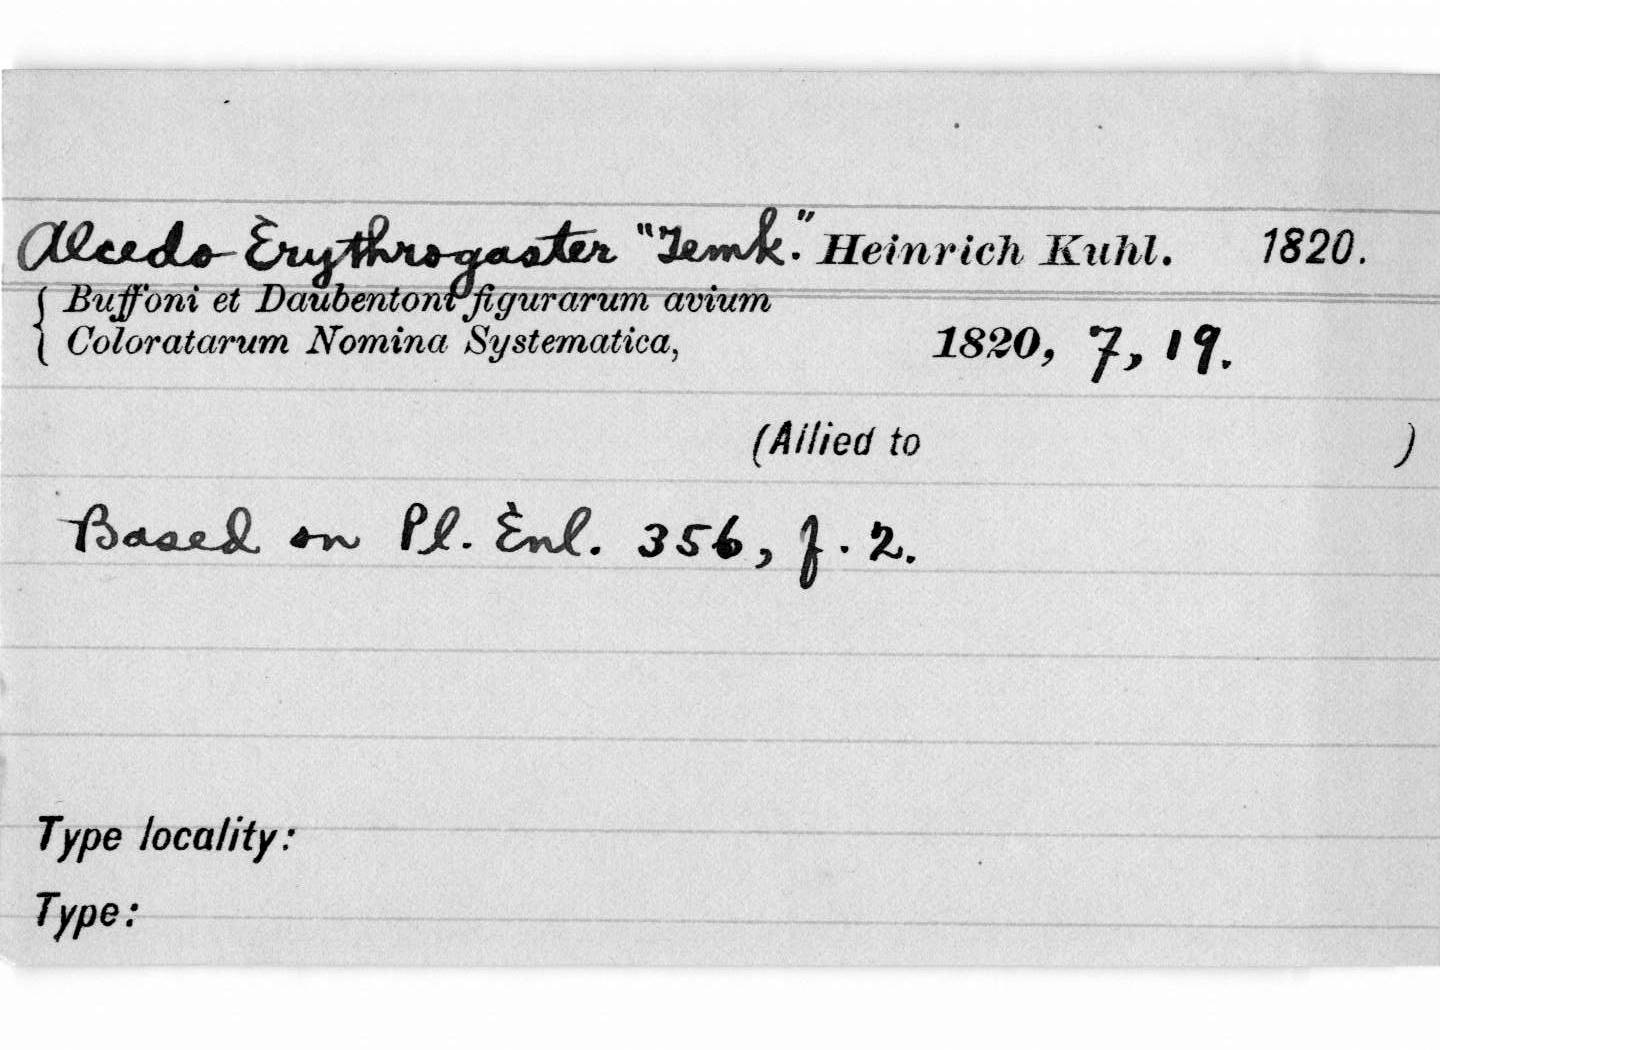 Alcedo Erythrogaster "Temk." Heinrich Kuhl. 1820.
Buffoni et Daubentoni figurarum avium
Coloratarum Nomina Systematica, 1820, 7, 19.
(Allied to )
Based on Pl. Enl. 356, f. 2.
Type locality:
Type: